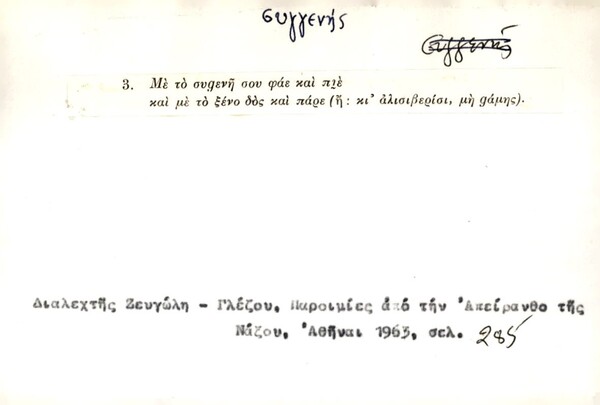 συγγενής
συγγενής
3. Μὲ τὸ συgενῆ σου φάε καὶ πιὲ
καὶ μὲ τὸ ξένο δὸς καὶ πάρε (ἤ: κι' ἀλισιβερίσι, μὴ gάμης).
Διαλεχτῆς Ζευγώλη - Γλέζου, Παροιμίες ἀπό τήν Ἀπείρανθο τῆς
Νάξου, Ἀθῆναι 1963, σελ. 285